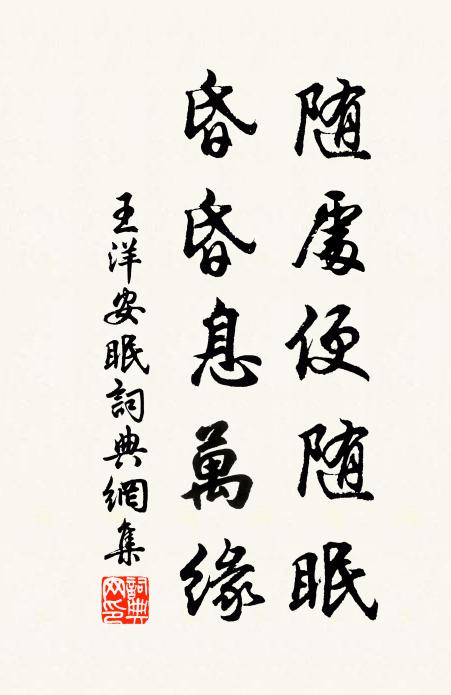 随處便随眠
昏昏息萬緣
王洋安眠詞典網集
詞典網印